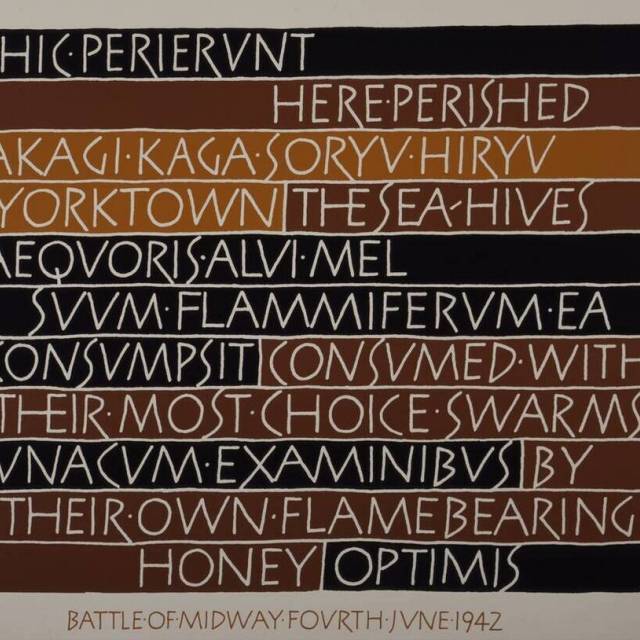 HIC·PERIERVNT
HERE·PERISHED
AKAGI·KAGA·SORYV·HIRYV
YORKTOWN THE SEA-HIVES
AEQVORIS·ALVI·MEL
SVVM·FLAMMIFERVM·EA
CONSVMPSIT CONSVMED·WITH
THEIR·MOST·CHOICE·SWARMS
VNACVM·EXAMINIBVS BY
THEIR·OWN·FLAMEBEARING
HONEY OPTIMIS
BATTLE·OF·MIDWAY·FOVRTH·JVNE·1942